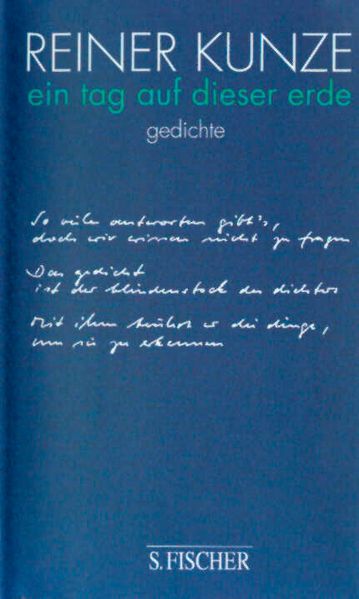 REINER KUNZE
ein tag auf dieser erde
gedichte
So viele antworten gibt's,
doch wir wissen nicht zu fragen
Das gedicht
ist der blindenstock des dichters
Mit ihm berührt er die dinge,
um sie zu erkennen
S. FISCHER